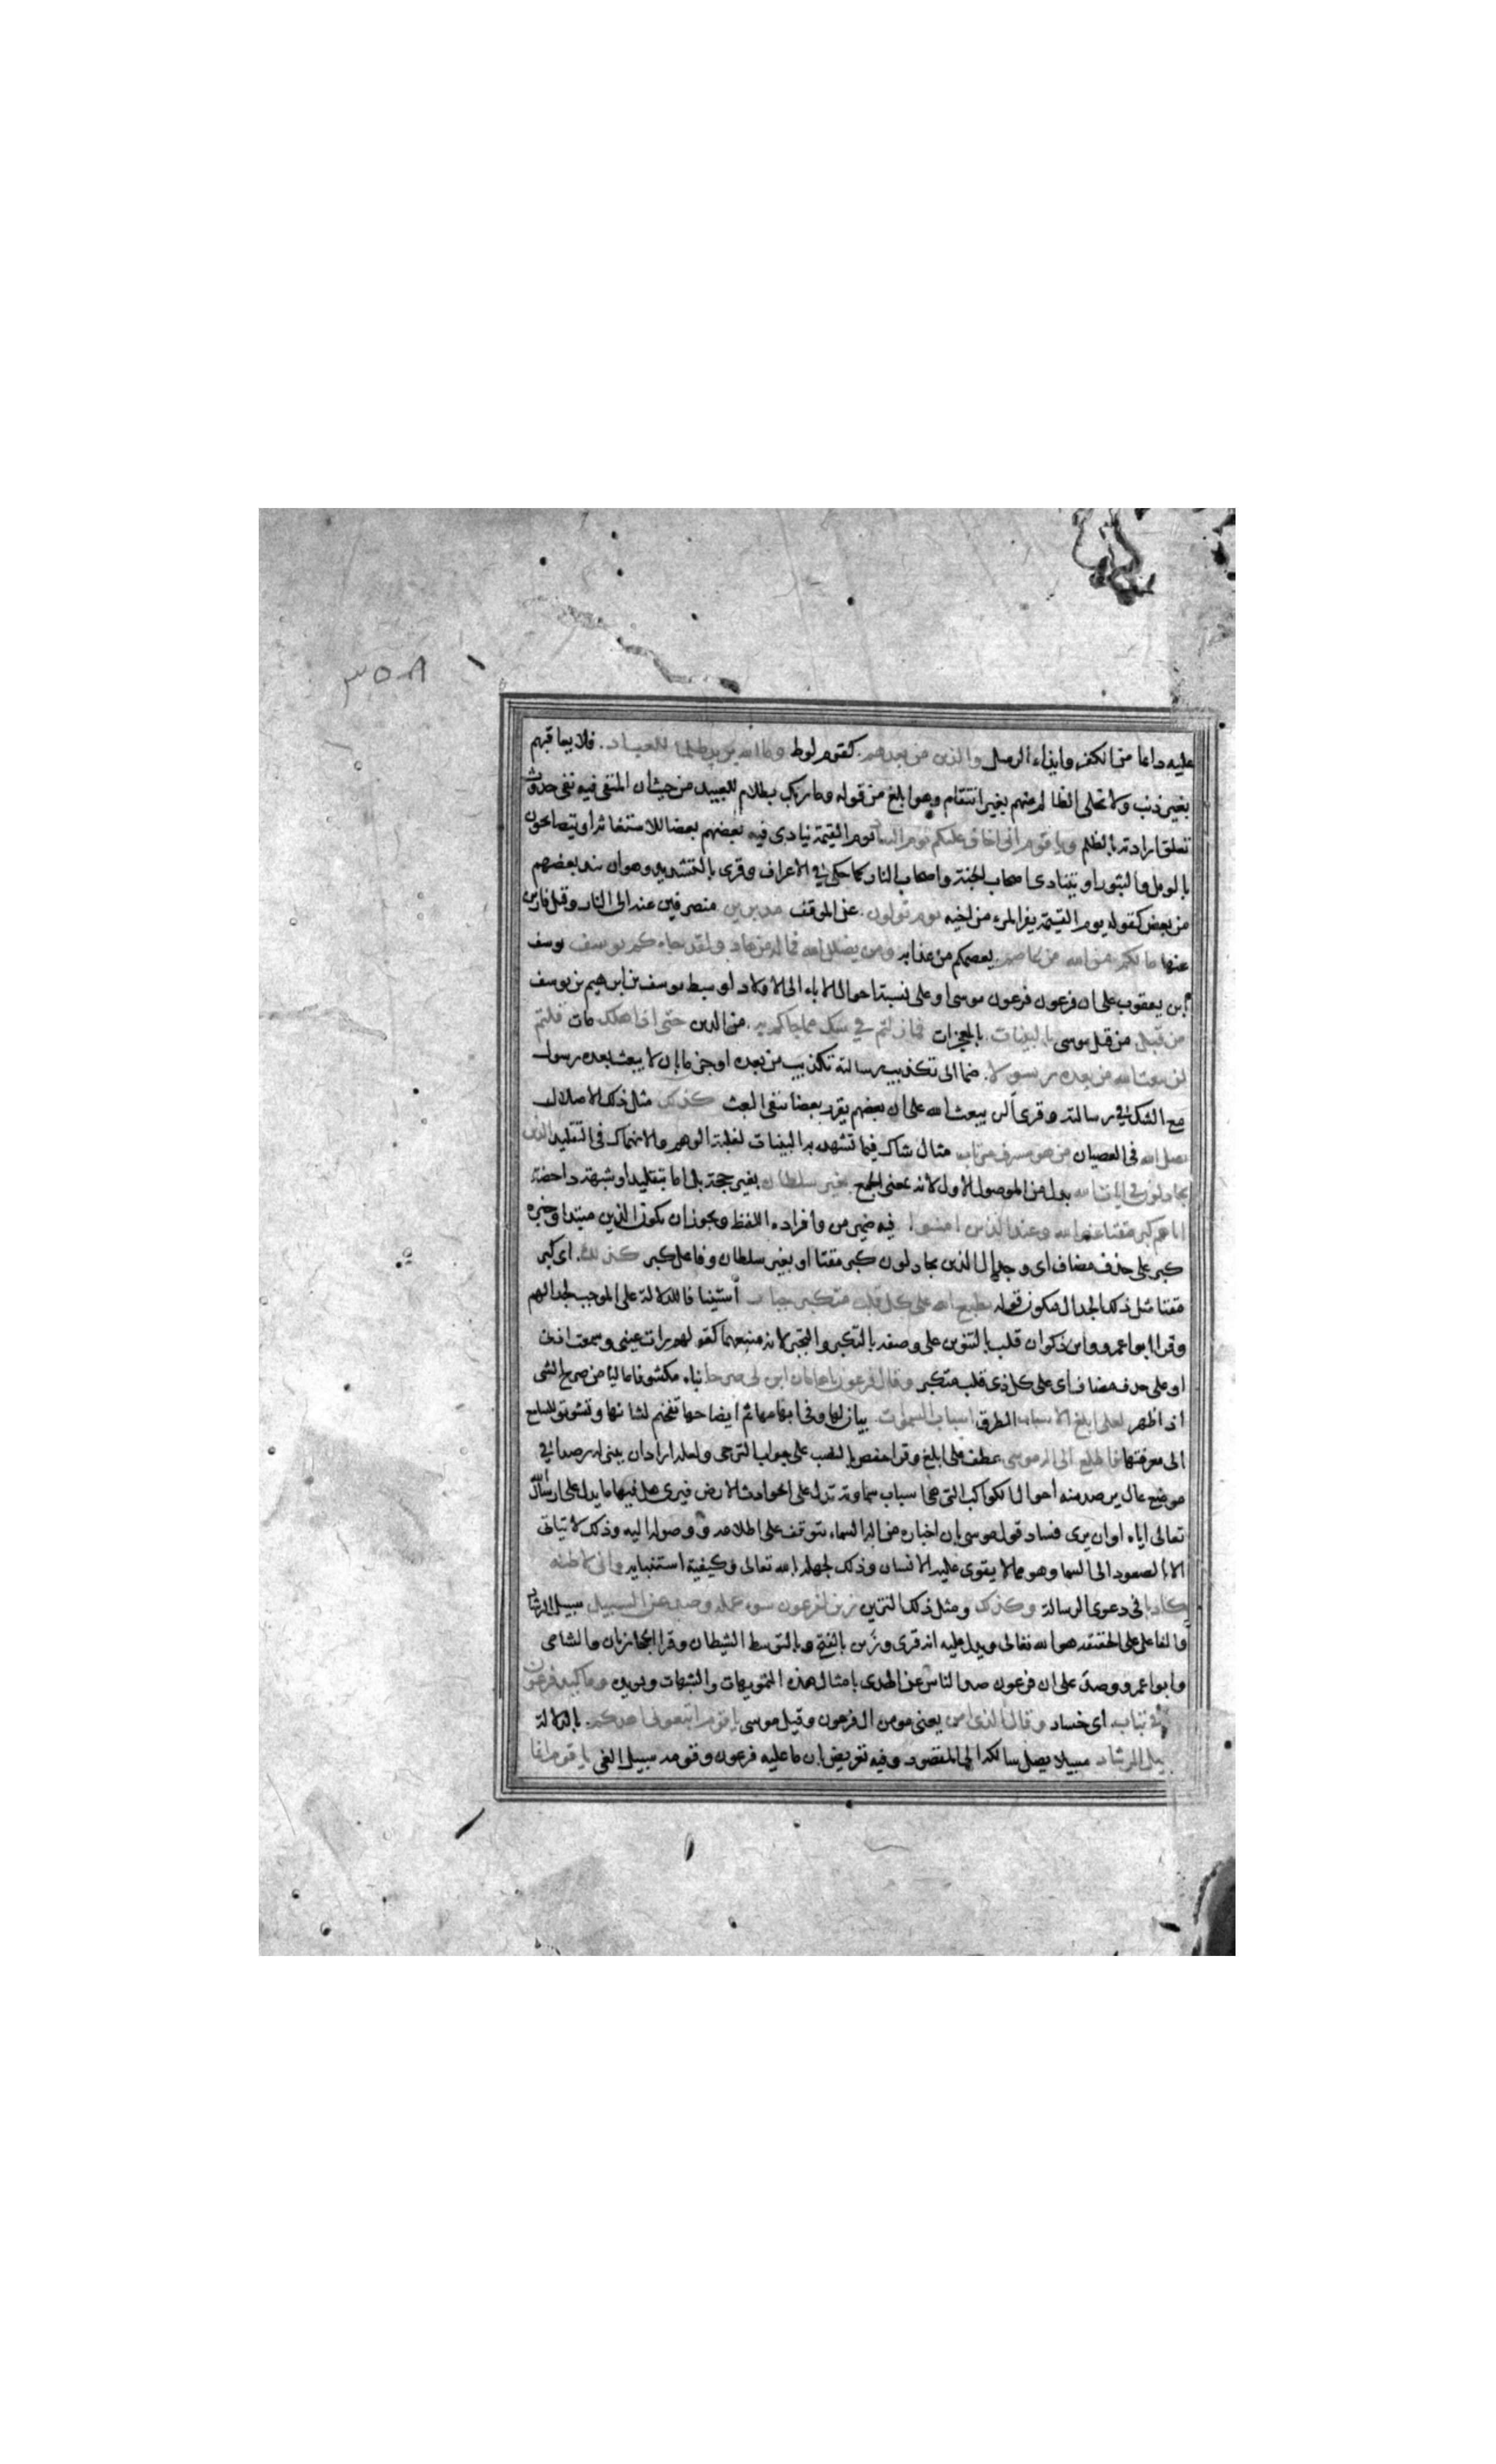 ٣٥٨
عليه دائما من الكفر وايذاء الرسل والذين من بعدهم كقوم لوط وما الله يريد ظلما للعباد فلا يعاقبهم
بغير ذنب ولا تخلى الظالم منهم بغير انتقام وهو ابلغ من قوله وما ربك بظلام للعبيد من حيث ان المنفى فيه نفى حدوث
تعلق ارادته بالظلم ويا قوم انى اخاف عليكم يوم التناد يوم القيمة ينادى فيه بعضهم بعضا للاستغاثة او يتصايحون
بالويل والثبور او يتنادى اصحاب الجنة واصحاب النار كما حكى في الاعراف وقرى بالتشديد وهو ان يند بعضهم
من بعض كقوله يوم القيمة يفر المرء من اخيه يوم تولون عن الموقف مدبرين منصرفين عنه الى النار وقيل فارين
عنها ما لكم من الله من عاصم يعصمكم من عذابه ومن يضلل الله فما له من هاد ولقد جاءكم يوسف يوسف
ابن يعقوب على ان فرعون فرعون موسى او على نسبة احوال الاباء الى الاولاد او سبطه يوسف بن ابرهيم بن يوسف
من قبل من قبل موسى بالبينات بالمعجزات فما زلتم في شك مما جاءكم به من الدين حتى اذا هلك مات قلتم
لن يبعث الله من بعده رسولا ضما الى تكذيب رسالته تكذيب من بعده او جزما بان لا يبعث بعده رسول
مع الشك في رسالته وقرى ألن يبعث الله على ان بعضهم يقرر بعضا بنفى البعث كذلك مثل ذلك الاضلال
يضل الله فى العصيان من هو مسرف مرتاب مثال شاك فيما تشهد به البينات لغلبة الوهم والانهماك فى التقليد الذين
يجادلون في ايات الله بدل من الموصول الاول لانه بمعنى الجمع بغير سلطان بغير حجة بل اما بتقليد او شبهة داحضة
اتاهم كبر مقتا عند الله وعند الذين امنوا فيه ضمير من وافراده اللفظ ويجوز ان يكون الذين مبتدا وخبره
كبر على حذف مضاف اى وجدال الذين يجادلون كبر مقتا او بغير سلطان وفاعل كبر كذلك اى كبر
مقتا مثل ذلك الجدال فيكون قوله يطبع الله على كل قلب متكبر جبار استينافا للدلالة على الموجب لجدالهم
وقرا ابو عمرو وابن ذكوان قلب بالتنوين على وصفه بالتكبر والتجبر لانه منبعهما كقولهم رات عينى وسمعت اذنى
او على حذف مضاف اى على كل ذى قلب متكبر وقال فرعون يا هامان ابن لى صرحا بناء مكشوفا عاليا من صرح الشى
اذا ظهر لعلى ابلغ الاسباب الطرق اسباب السموات بيان لها وفى ابهامها ثم ايضاحها تفخيم لشانها وتشويق للسامع
الى معرفتها فاطلع الى اله موسى عطف على ابلغ وقرا حفص بالنصب على جواب الترجى ولعله اراد ان يبنى له رصدا في
موضع عال يرصد منه احوال الكواكب التى هى اسباب سماوية تدل على الحوادث الارض فيرى هل فيها ما يدل على ارسال
تعالى اياه او ان يرى فساد قول موسى بان اخباره من اله السماء يتوقف على اطلاعه ووصوله اليه وذلك لا يتاتى
الا بالصعود الى السما وهو مما لا يقوى عليه الانسان وذلك لجهله بالله تعالى وكيفية استنبائه وانى لاظنه
كاذبا فى دعوى الرسالة وكذلك ومثل ذلك التزيين زين لفرعون سوء عمله وصد عن السبيل سبيل الرشاد
والفاعل على الحقيقة هو الله تعالى ويدل عليه انه قرى وزين بالفتح وبالتوسط الشيطان وقرا الحجازيان والشامى
وابو عمرو وصد على ان فرعون صد الناس عن الهدى بامثال هذه التمويهات والشبهات ويويده وما كيد فرعون
في تباب اى خساد وقال الذى امن يعنى مومن ال فرعون وقيل موسى يا قوم اتبعونى اهدكم بالدلالة
سبيل الرشاد سبيلا يصل سالكه الى المقصود وفيه تعريض بان ما عليه فرعون وقومه سبيل الغى يا قوم انما